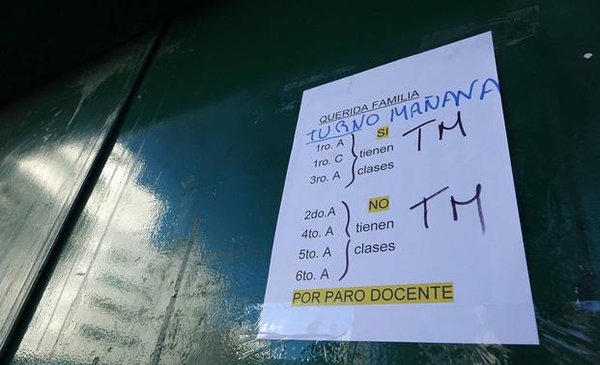 QUERIDA FAMILIA
TURNO MAÑANA
1ro. A SI TM
1ro. C tienen
3ro. A clases
2do.A NO TM
4to. A tienen
5to. A clases
6to. A
POR PARO DOCENTE